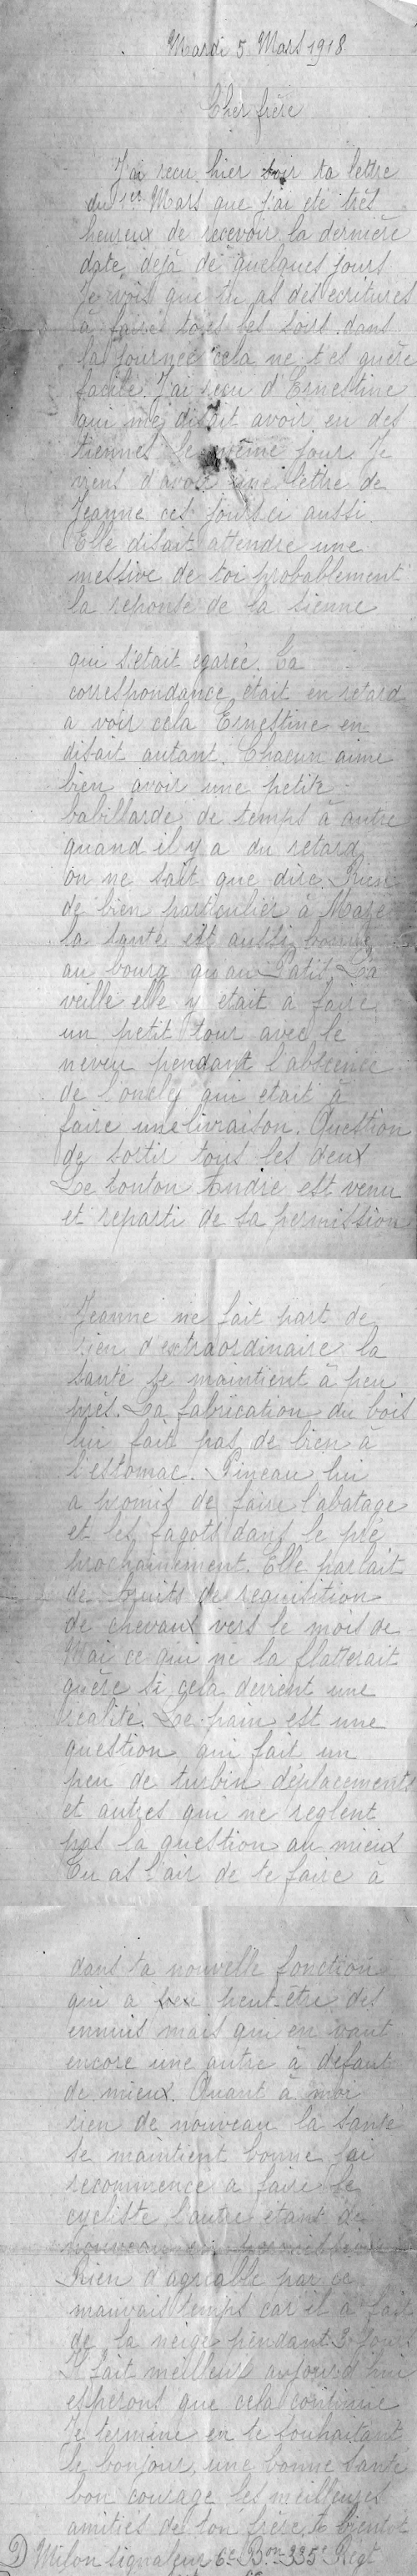 Mardi 5 Mars 1918
Cher frère
J'ai reçu hier soir ta lettre
du 1er Mars que j'ai été très
heureux de recevoir la dernière
date déjà de quelques jours
Je vois que tu as des ecritures
à faire tous les soirs dans
la journée cela ne t'es guère
facile. J'ai reçu d'Ernestine
qui me disait avoir eu des
tiennes le même jour. Je
viens d'avoir une lettre de
Jeanne ces jours ci aussi
Elle disait attendre une
messive de toi probablement
la reponse de la sienne
qui s'etait egarée. La
correspondance était en retard
a voir cela Ernestine en
disait autant. Chacun aime
bien avoir une petite
babillarde de temps à autre
quand il y a du retard
on ne sait que dire. Rien
de bien particulier à Mazé
la santé est aussi bonne
au bourg qu'au Patil. La
veille elle y etait a faire
un petit tour avec le
neveu pendant l'abscence
de l'oncly qui etait à
faire une livraison. Question
de sortir tous les deux
Le tonton André est venu
et reparti de sa permission
Jeanne ne fait part de
rien d'extraordinaire la
santé se maintient à peu
près. La fabrication du bois
lui fait pas de bien à
l'estomac. Pineau lui
a promis de faire l'abatage
et les fagots dans le pré
prochainement. Elle parlait
de bruits de requisition
de chevaux vers le mois de
Mai ce qui ne la flatterait
guère si cela devient une
realité. Le pain est une
question qui fait un
peu de turbin déplacements
et autres qui ne reglent
pas la question au mieux
Tu as l'air de te faire à
dans ta nouvelle fonction
qui a peut-être des
ennuis mais qui en vaut
encore une autre à defaut
de mieux. Quant à moi
rien de nouveau la santé
se maintient bonne j'ai
recommencé a faire le
cycliste l'autre étant de
nouveau en permission
Rien d'agréable par ce
mauvais temps car il a fait
de la neige pendant 3 jours
Il fait meilleur aujourd'hui
esperons que cela continue
Je termine en te souhaitant
le bonjour, une bonne santé
bon courage les meilleures
amitiés de ton frère. A bientot
Milon signaleur 6e Bon 335e Regt